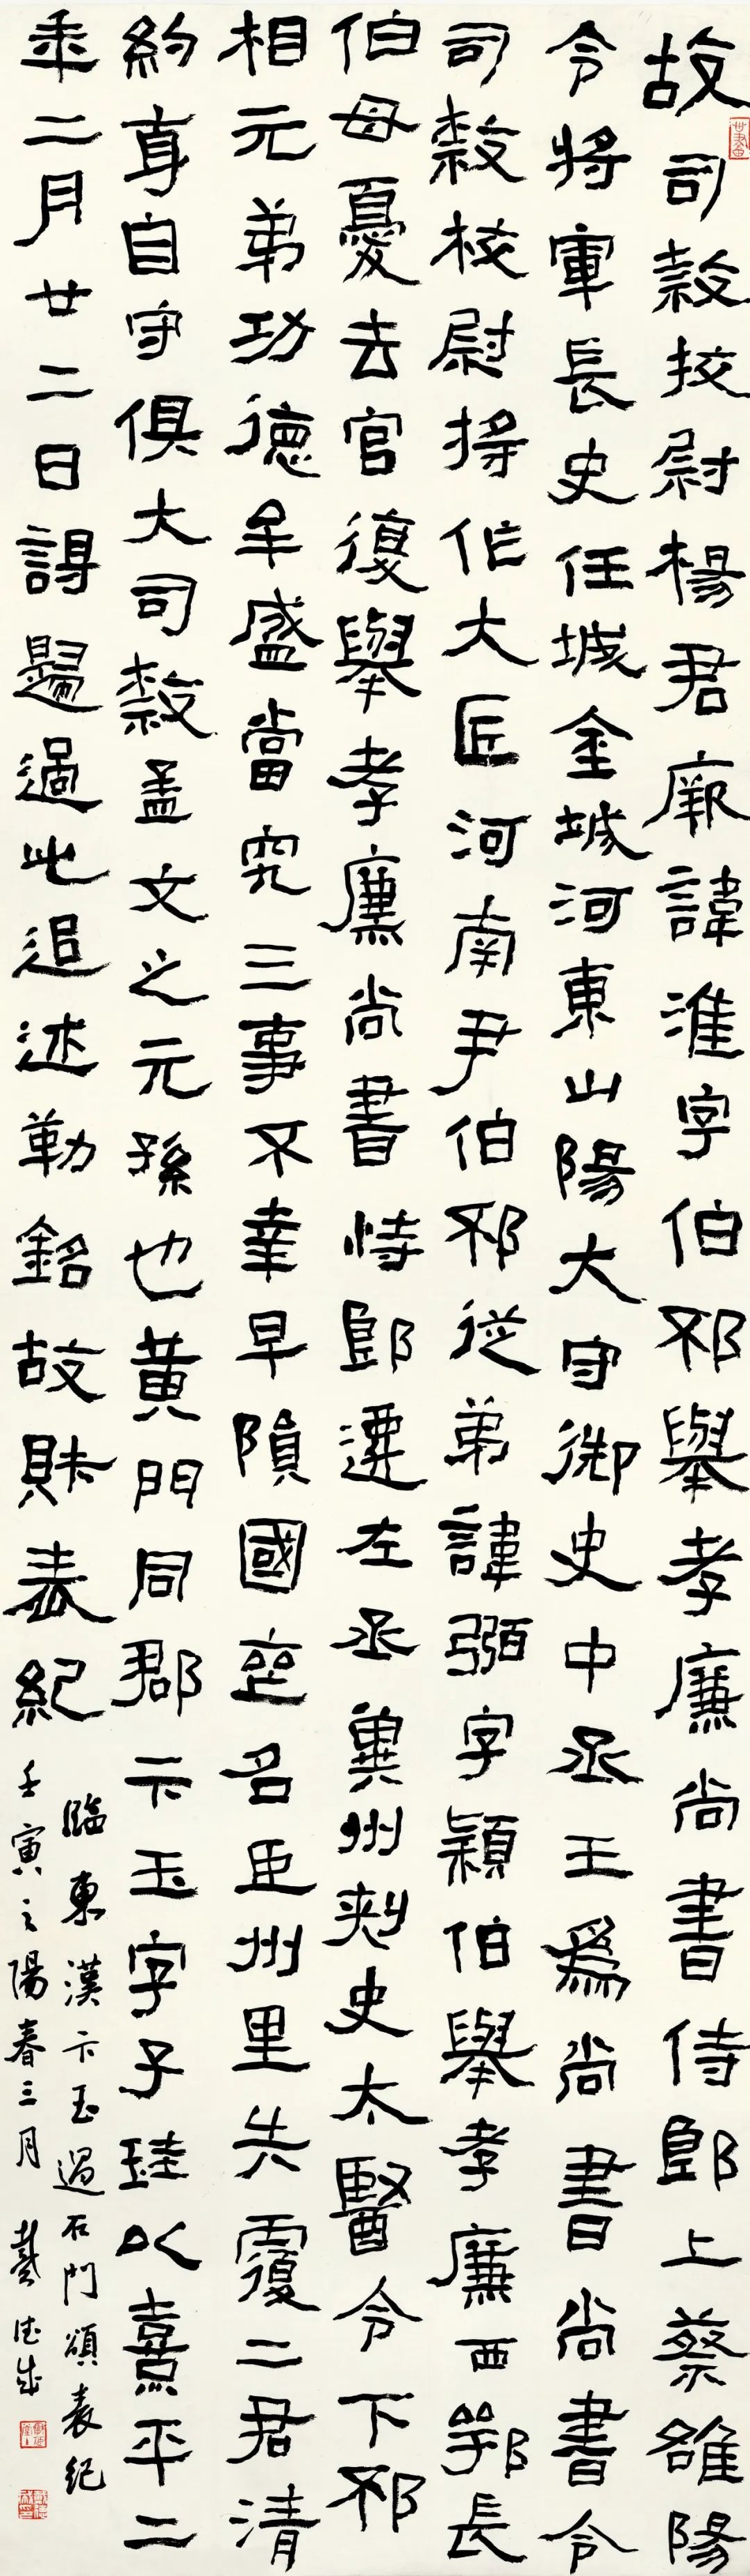 故司隸校尉楊君厥諱淮字伯邳舉孝廉尚書侍郎上蔡雒陽
令將軍長史任城金城河東山陽大守御史中丞王為尚書尚書令
司隸校尉將作大匠河南尹伯邳從弟諱弼字穎伯舉孝廉西鄂長
伯母憂去官復舉孝廉尚書侍郎遷左丞冀州刺史太醫令下邳
相元弟功德牟盛當究三事不幸早隕國喪名臣州里失覆二君清
約身自守俱大司隸孟文之元孫也黃門同郡卞玉字子珪以熹平二
年二月廿二日謁歸過此追述勒銘故財表紀
臨東漢卞玉過石門頌表紀
壬寅之陽春三月